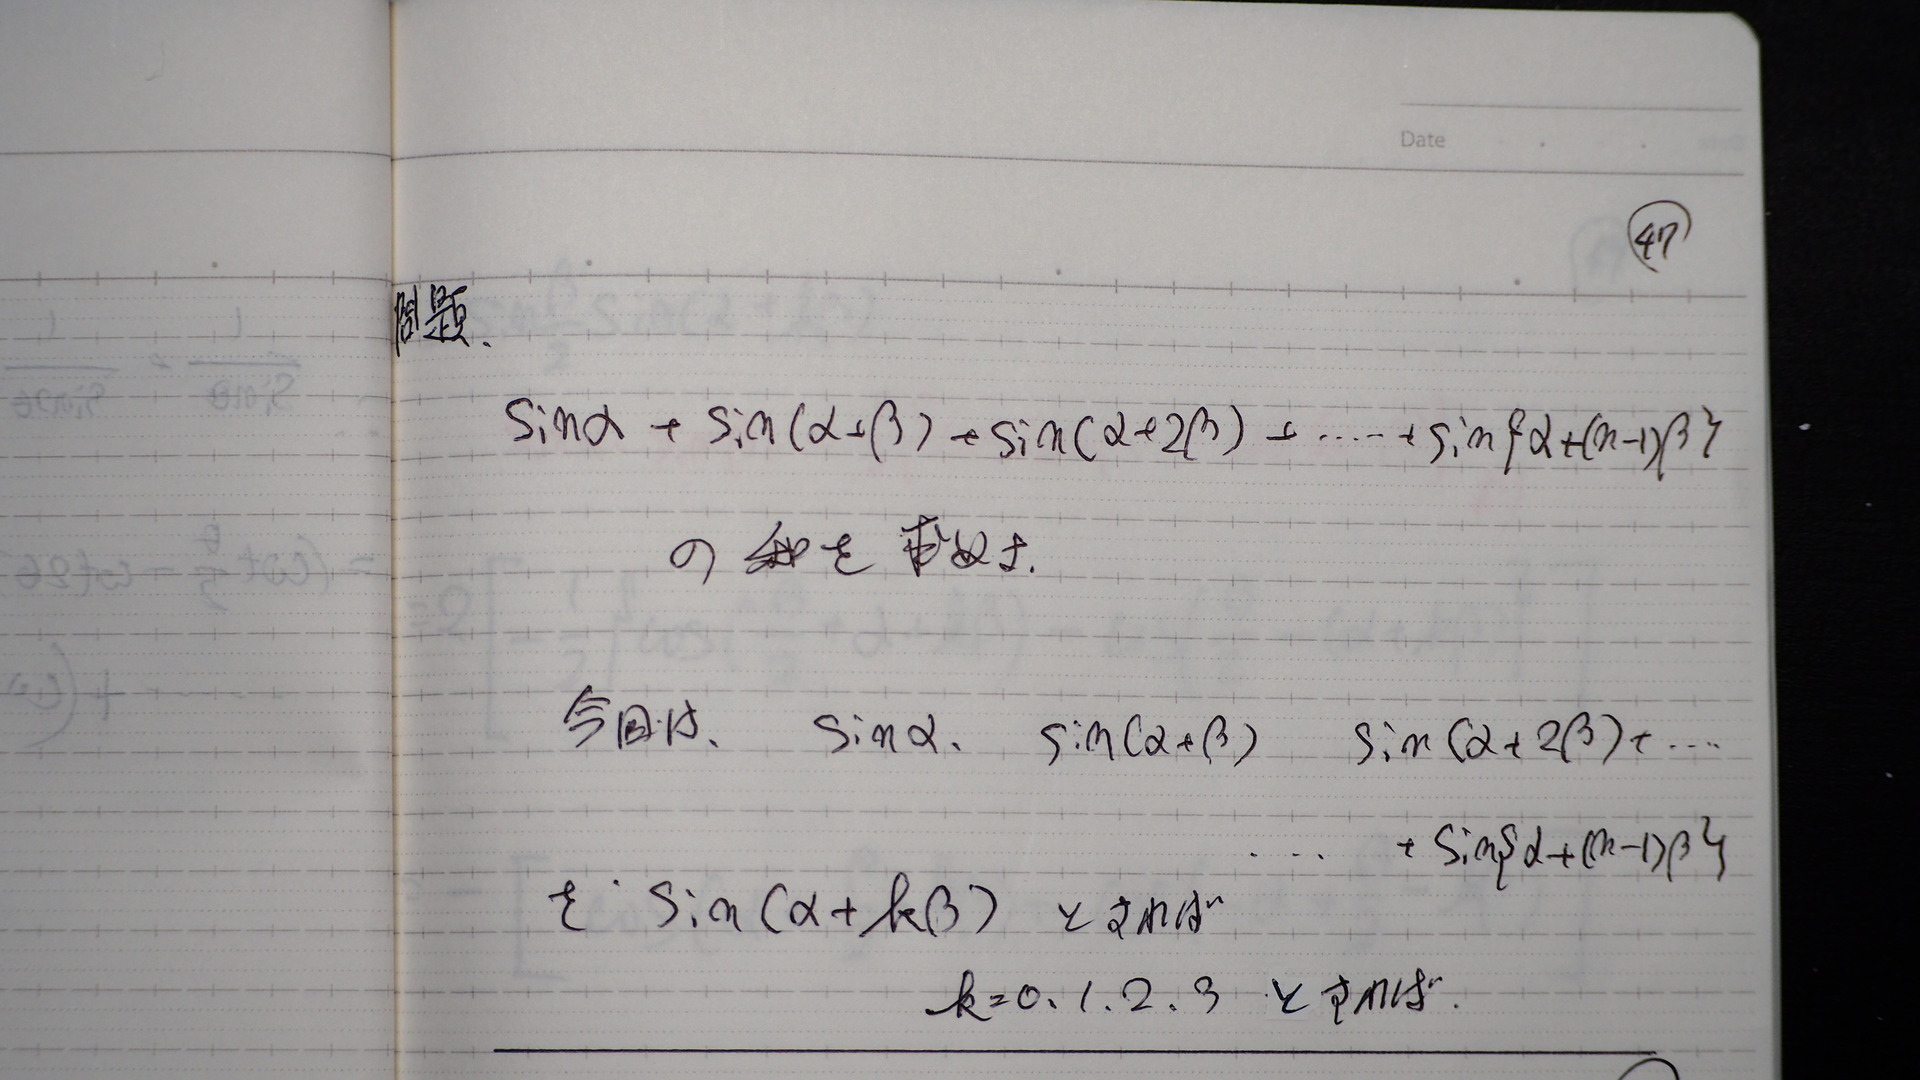 Date
47
問題.
sinα + sin(α+β) + sin(α+2β) + ····· + sin{α+(n-1)β}
の和を求めよ.
今回は、 sinα、 sin(α+β) sin(α+2β)+ ····
···· + sin{α+(n-1)β}
を sin(α+kβ) とすれば
k=0、1、2、3 とすれば.